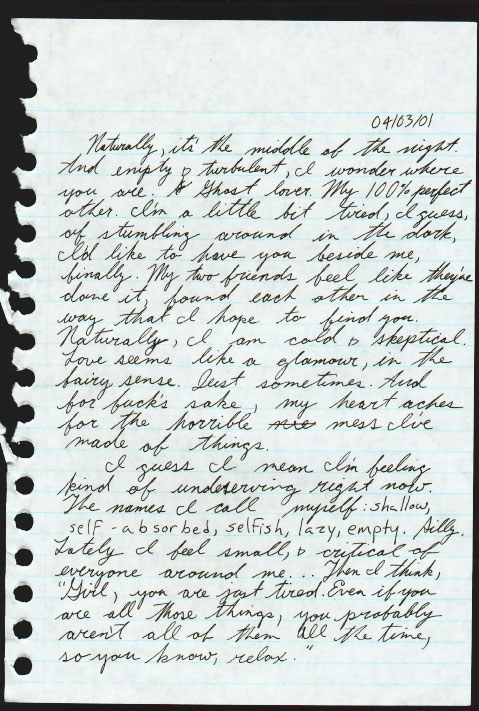 04/03/01
Naturally, it's the middle of the night.
And empty & turbulent, I wonder where
you are. A Ghost lover. My 100% perfect
other. I'm a little bit tired, I guess,
of stumbling around in the dark,
I'd like to have you beside me,
finally. My two friends feel like they've
done it, found each other in the
way that I hope to find you.
Naturally, I am cold & skeptical.
Love seems like a glamour, in the
fairy sense. Just sometimes. And
for fuck's sake, my heart aches
for the horrible mess I've
made of things.
I guess I mean I'm feeling
kind of undeserving right now.
The names I call myself: shallow,
self-absorbed, selfish, lazy, empty. Silly.
Lately I feel small, & critical of
everyone around me... Then I think,
"Girl, you are just tired. Even if you
are all those things, you probably
aren't all of them all the time,
so you know, relax."